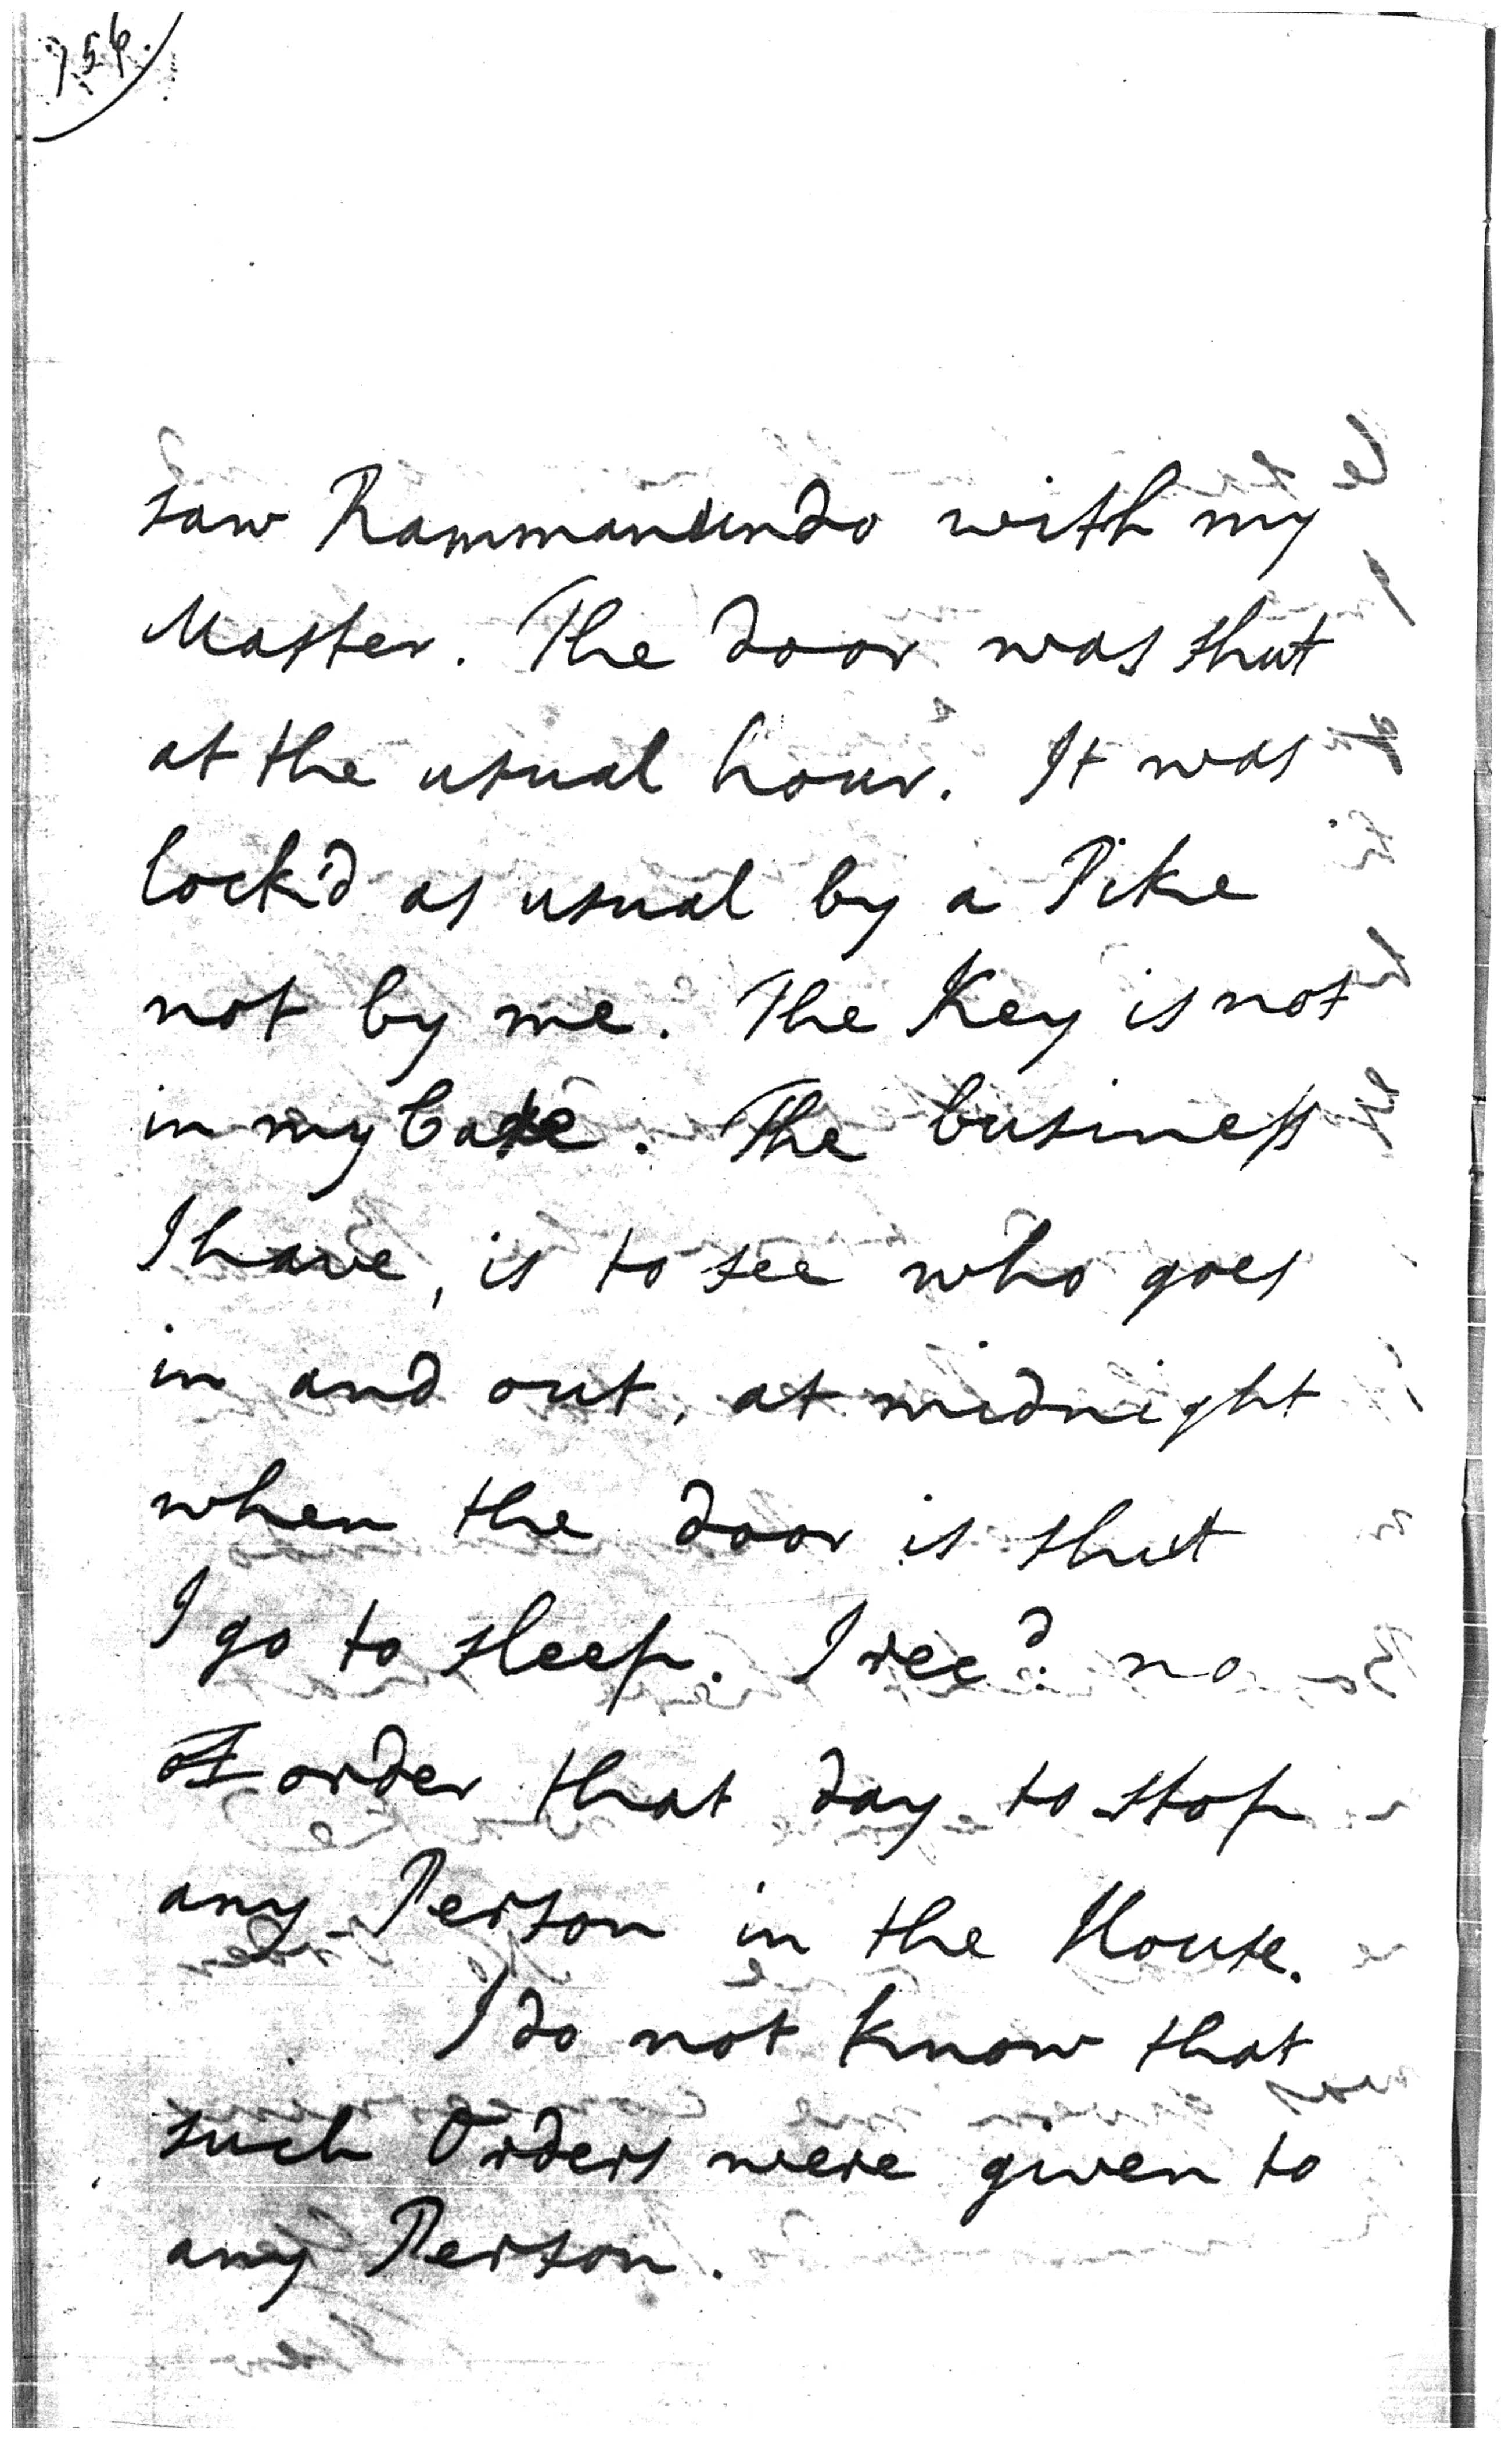 756.
saw Rammanundo with my
Master. The door was shut
at the usual hour. It was
lock'd as usual by a Pike
not by me. The Key is not
in my Care. The business
I have, is to see who goes
in and out, at midnight
when the door is shut
I go to sleep. I recd. no
order that day to stop
any Person in the House.
I do not know that
such Orders were given to
any Person.